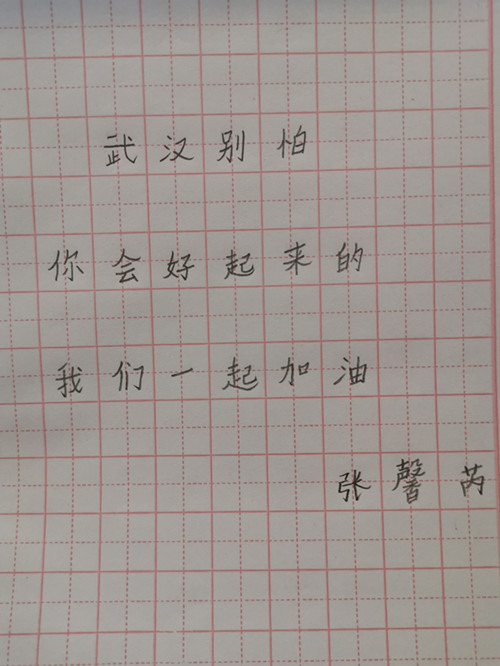 武汉别怕
你会好起来的
我们一起加油
张馨芮